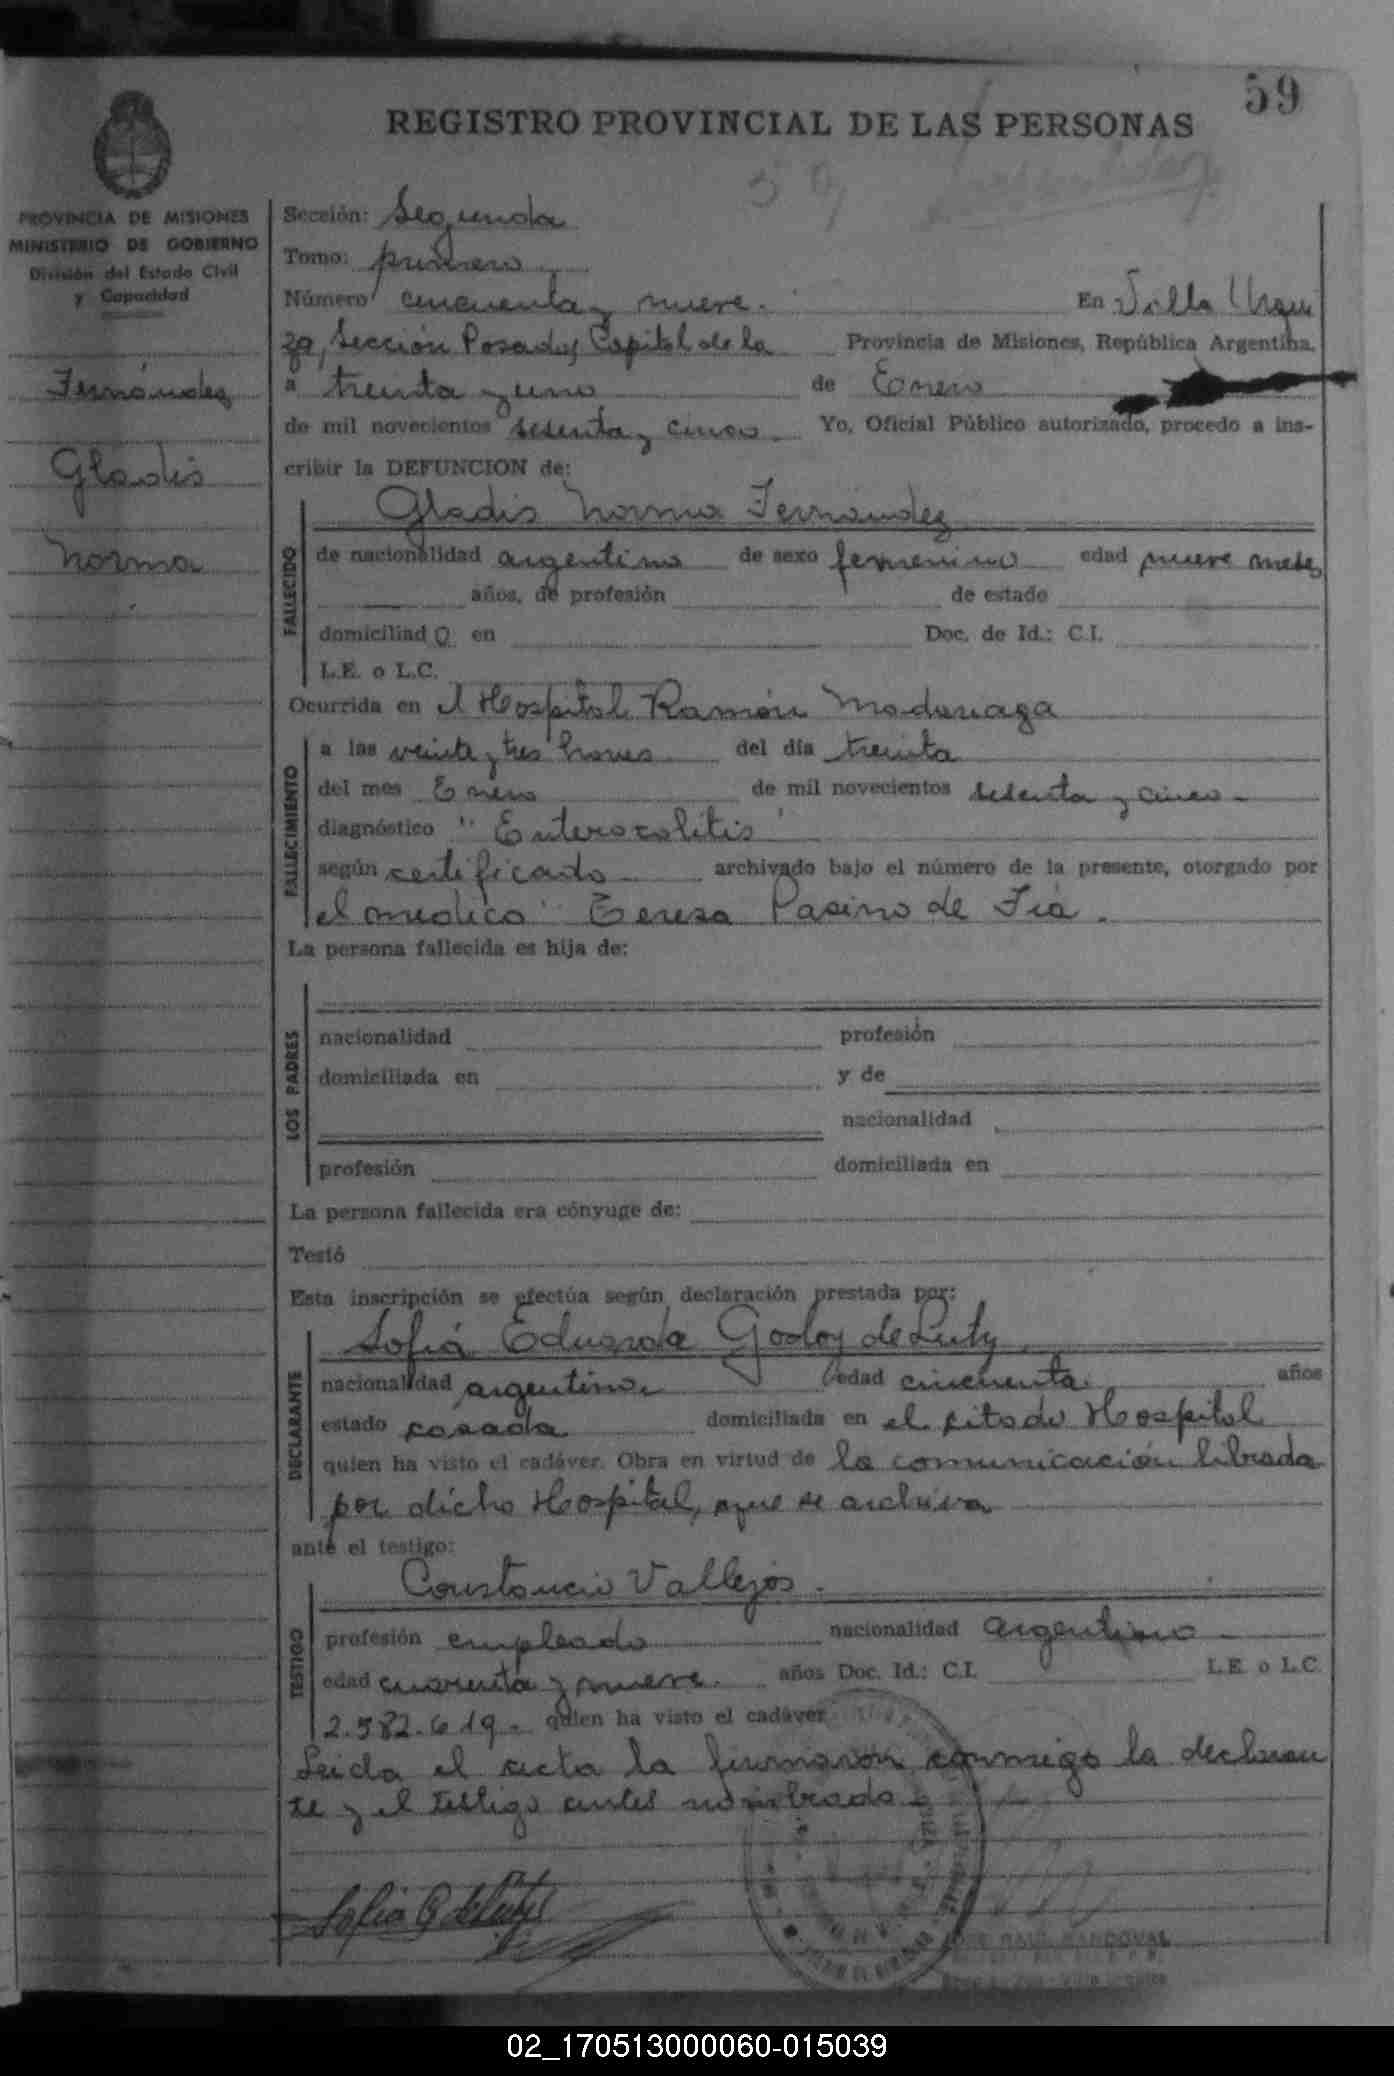 59
REGISTRO PROVINCIAL DE LAS PERSONAS
59
PROVINCIA DE MISIONES
MINISTERIO DE GOBIERNO
División del Estado Civil
y Capacidad
Fernández
Gladis
Norma
Sección: Segunda
Tomo: primero
Número cincuenta y nueve. En Villa Urqui
za, Sección Posadas Capital de la Provincia de Misiones, República Argentina,
a treinta y uno de Enero
de mil novecientos sesenta y cinco. Yo, Oficial Público autorizado, procedo a ins-
cribir la DEFUNCION de:
Gladis Norma Fernández
FALLECIDO
de nacionalidad argentina de sexo femenino edad nueve meses
años, de profesión de estado
domiciliad o en Doc. de Id.: C.I.
L.E. o L.C.
Ocurrida en el Hospital Ramón Madariaga
FALLECIMIENTO
a las veinte y tres horas del día treinta
del mes Enero de mil novecientos sesenta y cinco -
diagnóstico " Enterocolitis "
según certificado archivado bajo el número de la presente, otorgado por
el medico Teresa Pasino de Fia.
La persona fallecida es hija de:
LOS PADRES
nacionalidad profesión
domiciliada en y de
nacionalidad
profesión domiciliada en
La persona fallecida era cónyuge de:
Testó
Esta inscripción se efectúa según declaración prestada por:
Sofia Eduarda Godoy de Luty
DECLARANTE
nacionalidad argentina edad cincuenta años
estado casada domiciliada en el citado Hospital
quien ha visto el cadáver. Obra en virtud de la comunicación librada
por dicho Hospital, que se archiva
ante el testigo:
Constancio Vallejos.
TESTIGO
profesión empleado nacionalidad argentino -
edad cuarenta y nueve. años Doc. Id.: C.I. L.E. o L.C.
2.582.619. quien ha visto el cadáver
Leida el acta la firmaron conmigo la declaran
te y el testigo antes nombrado.
Sofia G de Luty
JOSE RAUL SANDOVAL
02_170513000060-015039